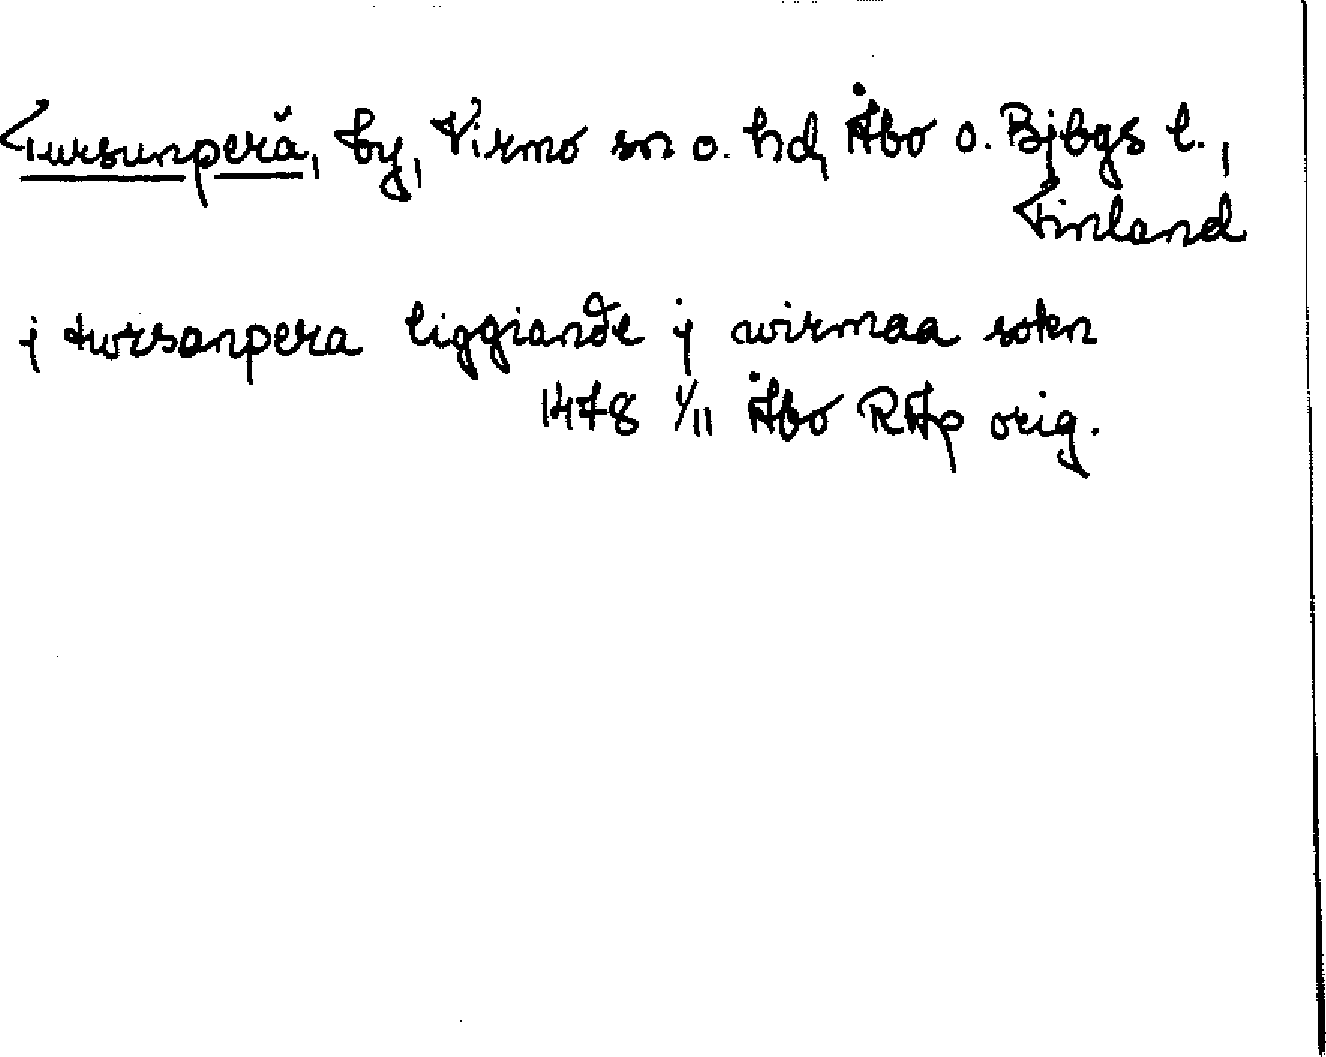 Tursunperä, by, Virmo sn o. hd, Åbo o. Bjbgs l.,
Finland
j tursanpera liggiande j wirmaa sokn
1478 1/11 Åbo RAp orig.